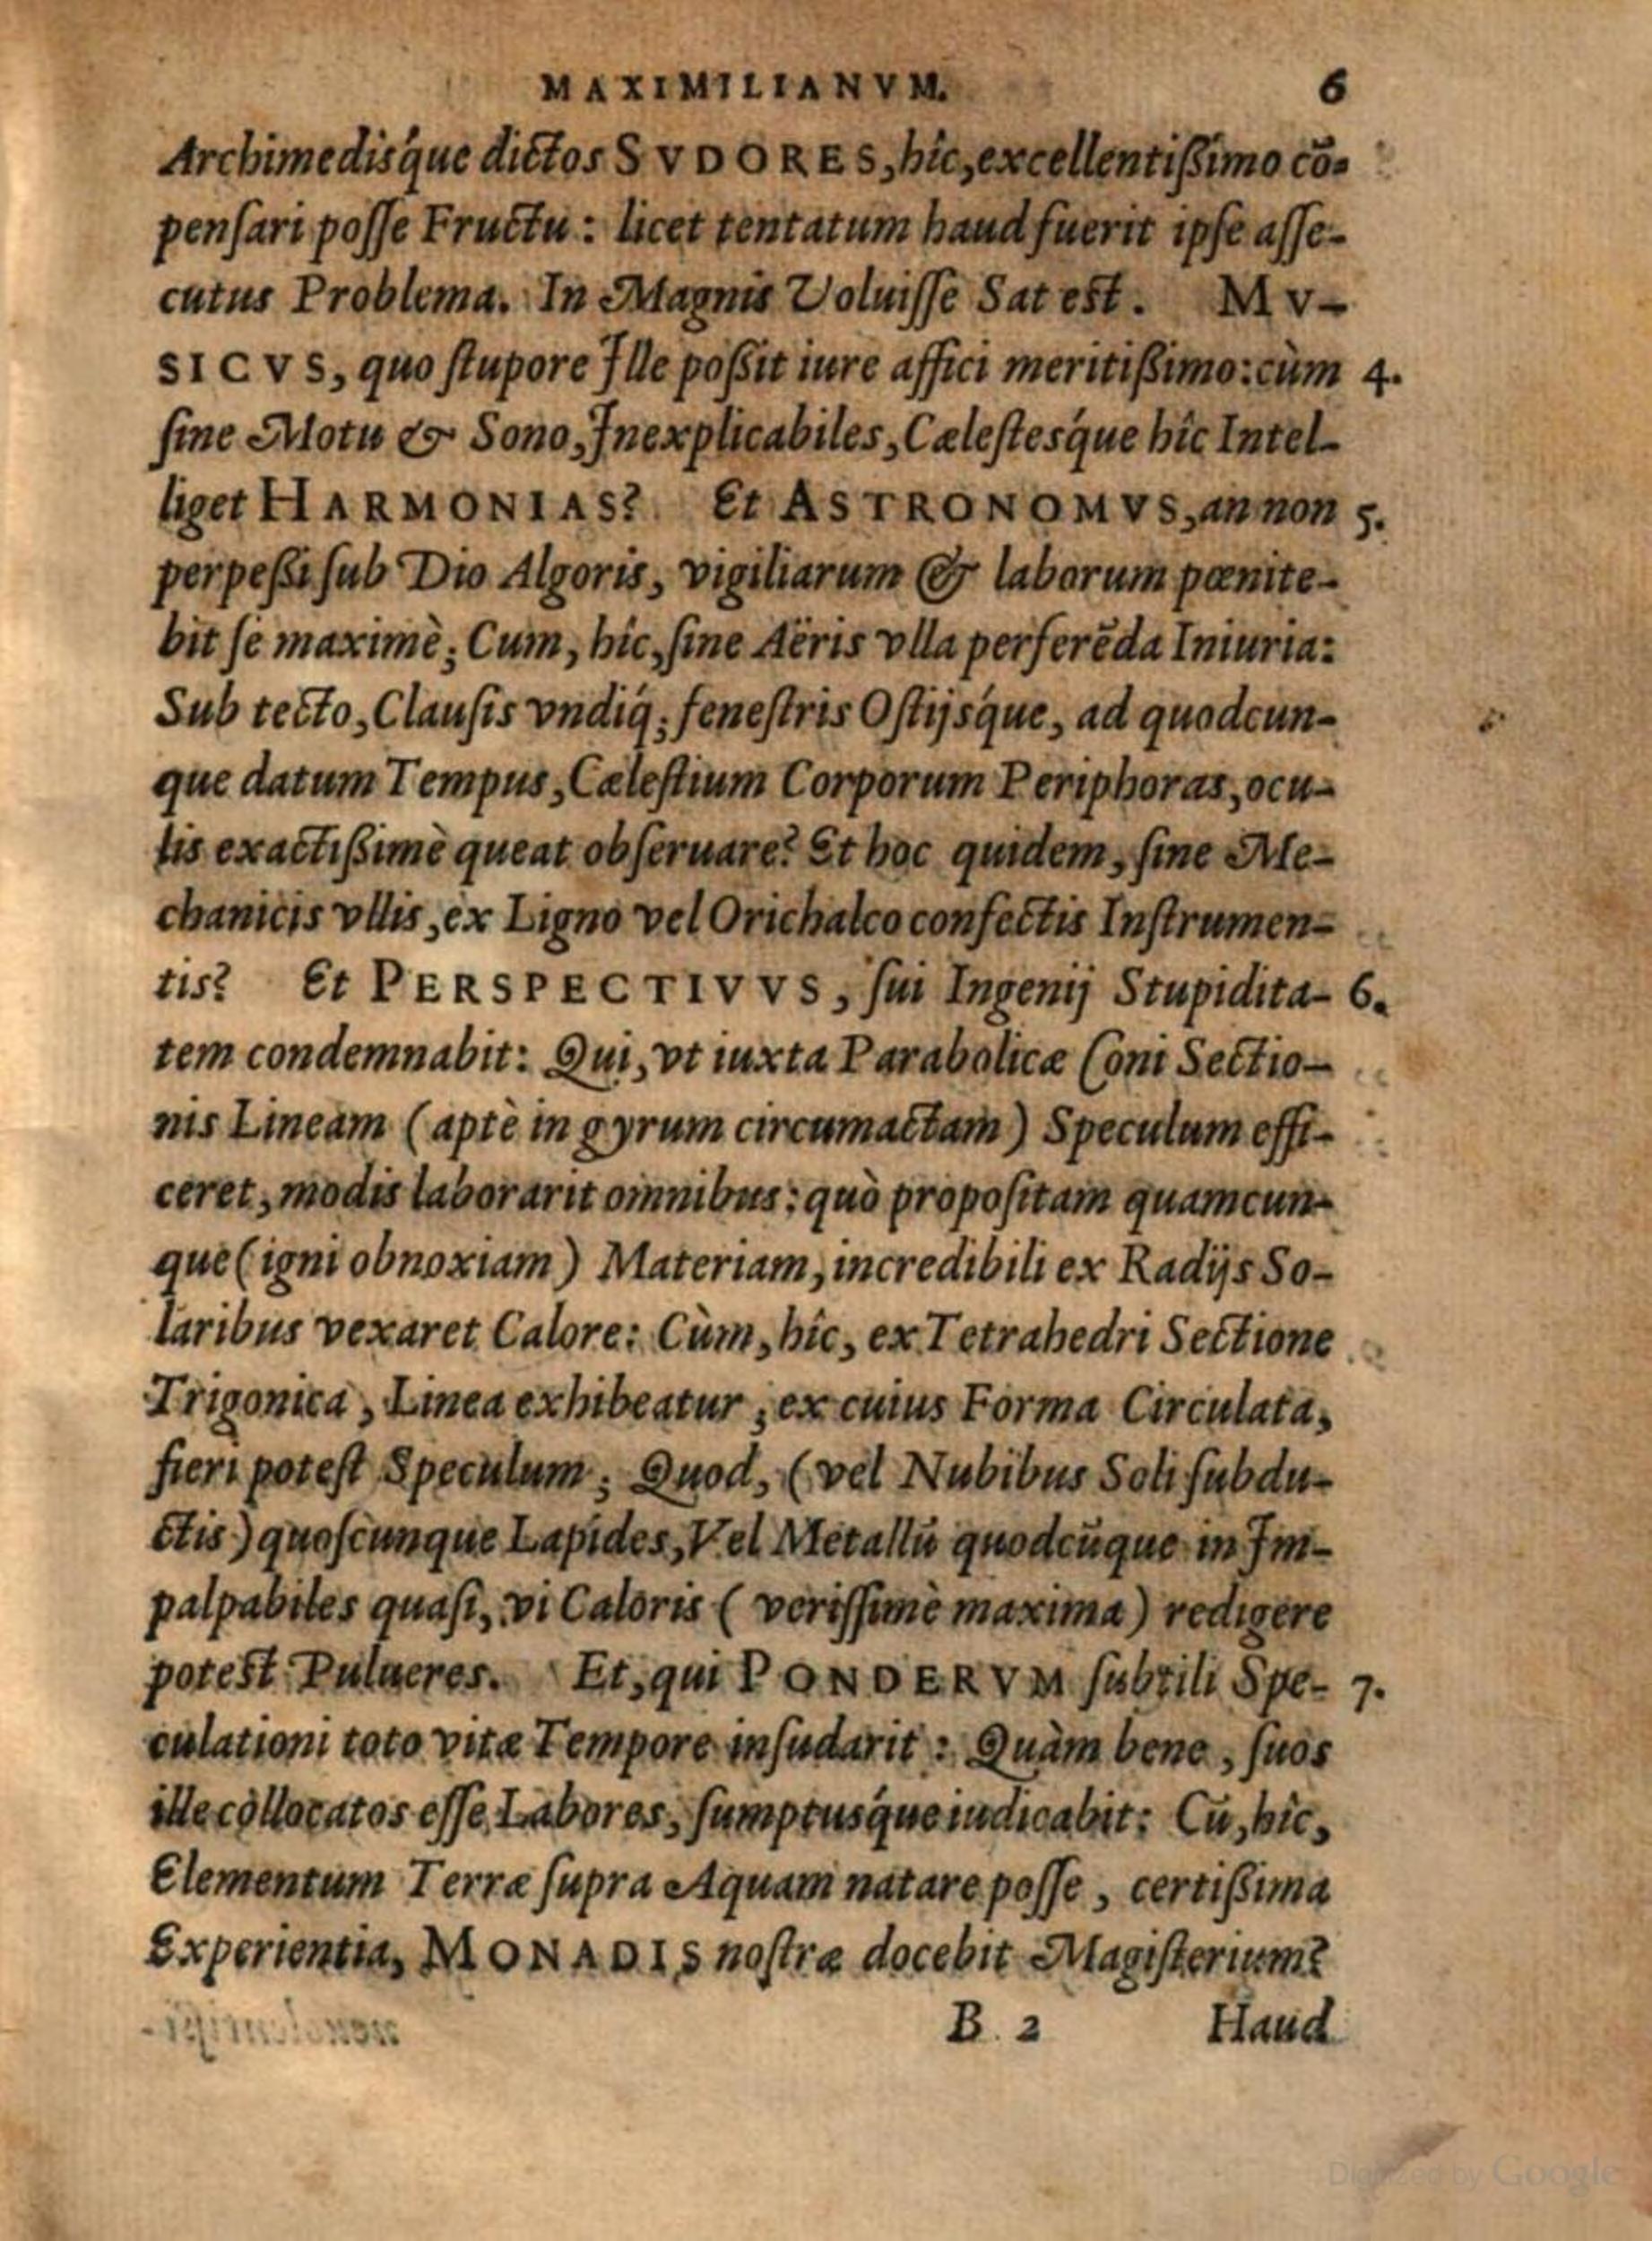 MAXIMILIANVM. 6
Archimedisq́ue dictos SVDORES, hîc, excellentißimo cō-
penſari poſſe Fructu: licet tentatum haud fuerit ipſe aſſe-
cutus Problema. In Magnis Voluiſſe Sat est. MV-
SICVS, quo ſtupore Ille poßit iure affici meritißimo: cùm 4.
ſine Motu & Sono, Inexplicabiles, Cæleſtesq́ue hîc Intel-
liget HARMONIAS? Et ASTRONOMVS, an non 5.
perpeßi ſub Dio Algoris, vigiliarum & laborum pœnite-
bit ſe maximè; Cum, hîc, ſine Aëris vlla perferēda Iniuria:
Sub tecto, Clauſis vndiq́; feneſtris Oſtijsq́ue, ad quodcun-
que datum Tempus, Cæleſtium Corporum Periphoras, ocu-
lis exactißimè queat obſeruare? Et hoc quidem, ſine Me-
chanicis vllis, ex Ligno vel Orichalco confectis Inſtrumen-
tis? Et PERSPECTIVVS, ſui Ingenij Stupidita- 6.
tem condemnabit: Qui, vt iuxta Parabolicæ Coni Sectio-
nis Lineam (aptè in gyrum circumactam) Speculum effi-
ceret, modis laborarit omnibus: quò propoſitam quamcun-
que (igni obnoxiam) Materiam, incredibili ex Radijs So-
laribus vexaret Calore: Cùm, hîc, ex Tetrahedri Sectione
Trigonica, Linea exhibeatur; ex cuius Forma Circulata,
fieri poteſt Speculum; Quod, (vel Nubibus Soli ſubdu-
ctis) quoſcunque Lapides, Vel Metallū quodcūque in Im-
palpabiles quaſi, vi Caloris (veriſſimè maxima) redigere
potest Pulueres. Et, qui PONDERVM ſubtili Spe- 7.
culationi toto vitæ Tempore inſudarit: Quàm bene, ſuos
ille collocatos eſſe Labores, ſumptusq́ue iudicabit: Cū, hîc,
Elementum Terræ ſupra Aquam natare poſſe, certißima
Experientia, MONADIS noſtræ docebit Magiſterium?
B 2 Haud
Digitized by Google